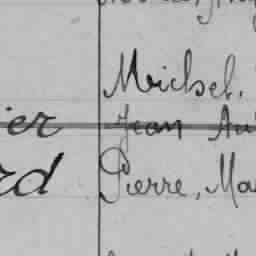 Michel,
ier Jean Au
rd Pierre, Ma